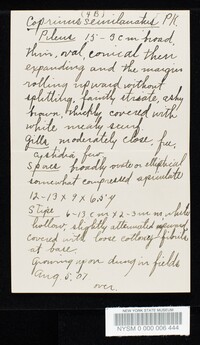 (4B)
Coprinus semilanatus Pk.
Pileus 1.5-3 cm broad,
thin, oval, conical then
expanding and the margin
rolling upward without
splitting, faintly striate, ashy
brown thickly covered with
white mealy scurf
Gills moderately close, free,
cystidia few
Spores broadly ovate or elliptical
somewhat compressed apiculate
12-13 x 9 x 6.5 µ
Stipe 6-13 cm x 2-3 mm, white
hollow, slightly attenuated upward
covered with loose cottony fibrils
at base.
Growing upon dung in fields
Aug. 5, 07
over.
NEW YORK STATE MUSEUM
NYSM 0 000 006 444